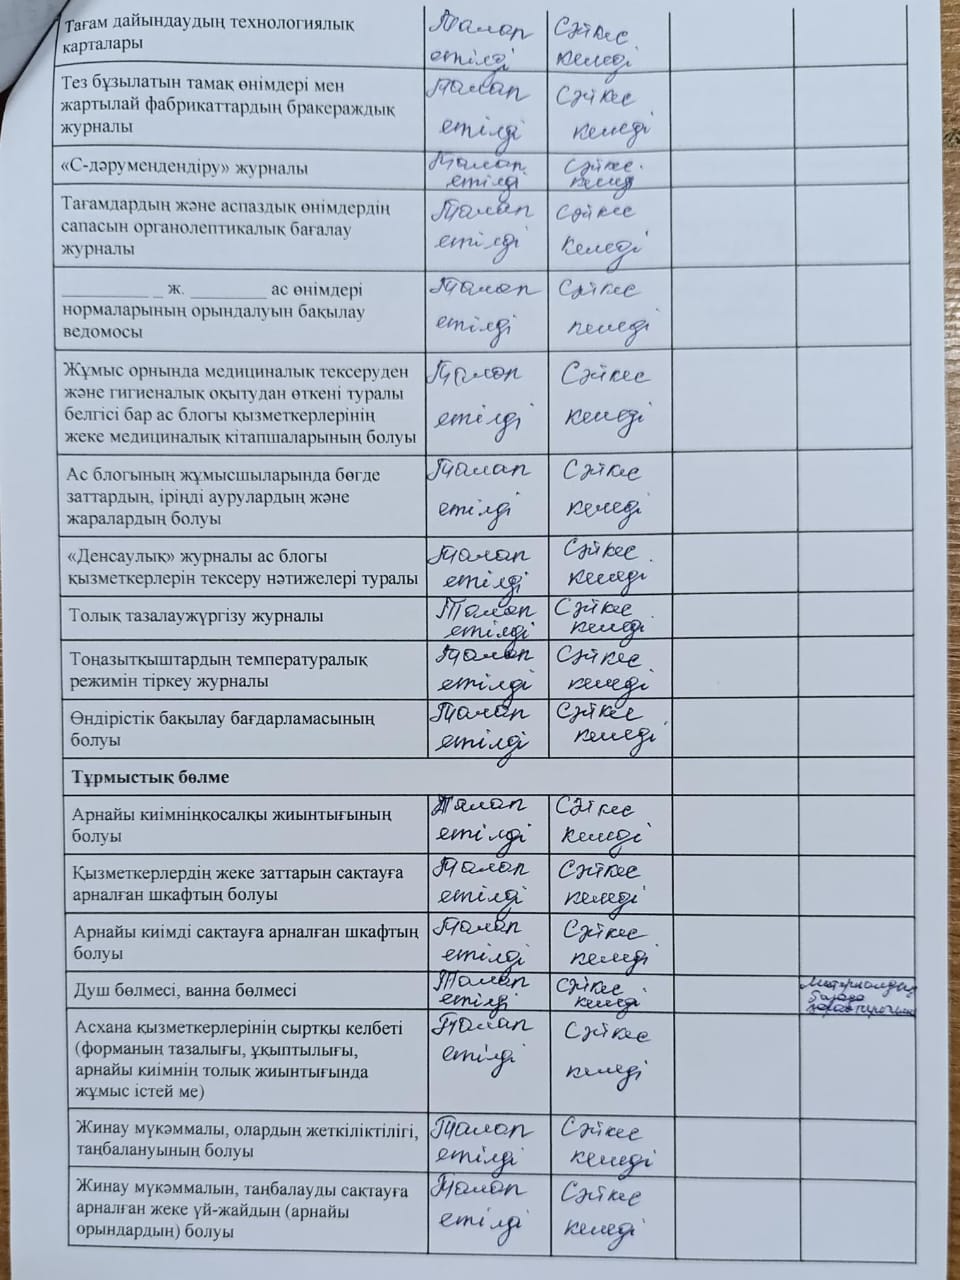 Тағам дайындаудың технологиялық
карталары
Талап
етілді
Сәйкес
келеді
Тез бұзылатын тамақ өнімдері мен
жартылай фабрикаттардың бракераждық
журналы
Талап
етілді
Сәйкес
келеді
«С-дәрумендендіру» журналы
Талап
етілді
Сәйкес
келеді
Тағамдардың және аспаздық өнімдердің
сапасын органолептикалық бағалау
журналы
Талап
етілді
Сәйкес
келеді
_________ _ ж. ________ ас өнімдері
нормаларының орындалуын бақылау
ведомосы
Талап
етілді
Сәйкес
келеді
Жұмыс орнында медициналық тексеруден
және гигиеналық оқытудан өткені туралы
белгісі бар ас блогы қызметкерлерінің
жеке медициналық кітапшаларының болуы
Талап
етілді
Сәйкес
келеді
Ас блогының жұмысшыларында бөгде
заттардың, іріңді аурулардың және
жаралардың болуы
Талап
етілді
Сәйкес
келеді
«Денсаулық» журналы ас блогы
қызметкерлерін тексеру нәтижелері туралы
Талап
етілді
Сәйкес
келеді
Толық тазалаужүргізу журналы
Талап
етілді
Сәйкес
келеді
Тоңазытқыштардың температуралық
режимін тіркеу журналы
Талап
етілді
Сәйкес
келеді
Өндірістік бақылау бағдарламасының
болуы
Талап
етілді
Сәйкес
келеді
Тұрмыстық бөлме
Арнайы киімніңқосалқы жиынтығының
болуы
Талап
етілді
Сәйкес
келеді
Қызметкерлердің жеке заттарын сақтауға
арналған шкафтың болуы
Талап
етілді
Сәйкес
келеді
Арнайы киімді сақтауға арналған шкафтың
болуы
Талап
етілді
Сәйкес
келеді
Душ бөлмесі, ванна бөлмесі
Талап
етілді
Сәйкес
келеді
Материалдық
базада
Асхана қызметкерлерінің сыртқы келбеті
(форманың тазалығы, ұқыптылығы,
арнайы киімнің толық жиынтығында
жұмыс істей ме)
Талап
етілді
Сәйкес
келеді
Жинау мүкәммалы, олардың жеткіліктілігі,
таңбалануының болуы
Талап
етілді
Сәйкес
келеді
Жинау мүкәммалын, таңбалауды сақтауға
арналған жеке үй-жайдың (арнайы
орындардың) болуы
Талап
етілді
Сәйкес
келеді